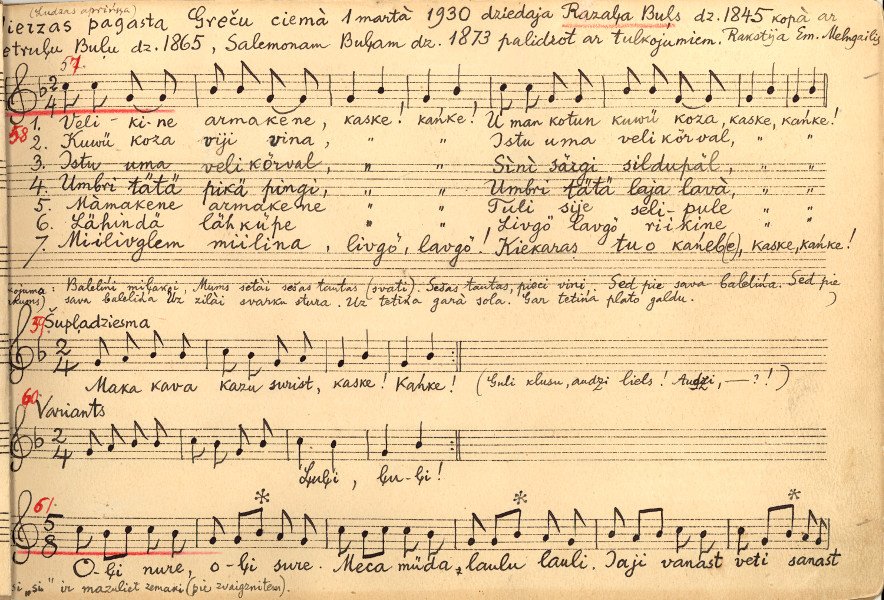 (Ludzas apriņķa)
Pierzas pagasta Greču ciemā 1 martā 1930 dziedāja Razaļa Buļs dz. 1845 kopā ar
Petruļu Buļu dz. 1865, Salemonam Buļam dz. 1873 palidzot ar tulkojumiem. Rakstīja Em. Melngailis
57.
2 4
58
1. Veli-ki-ne armakene, kaske! kańke! U man kotun kuwü koza, kaske, kańke!
2. Kuwü koza viji vina, " " Istu uma velikõrval, " "
3. Istu uma velikõrval, " " Sìnì särgi sildupäl, " "
4. Umbri tätä pikä pingi, " " Umbri tätä laja lavà, " "
5. Màmakene armakene " " Tuli sije seli-pule " "
6. Lähindä lähküpe " " Livgö lavgö riikine " "
7. Miilivglem miilina, livgö, lavgö! Kiekaras tuo kańeb(e), kaske, kańke!
: Baleliņi miļakgi, Mums sētāi sešas tautas (svati). Sešas tautas, pieci vini. Sēd pie sava baleliņa. Sēd pie
sava baleliņa Uz zilāi svarku stura. Uz tetiņa garà sola. Gar tetiņa plato galdu. )
59 Šupļadziesma
2 4
Maka kava kazu surist, kaske! Kańke! (Guli klusu, audzi liels! Audzi, — ? !)
60. Variants
2 4
Ļuļi, ļu-ļi!
61.
5 8
* * *
O-ļi nure, o-ļi sure. Meca müda, laulu lauli. Taji vanast veti sanast
"si" ir mazuliet zemaki (pie zvaigznitem).